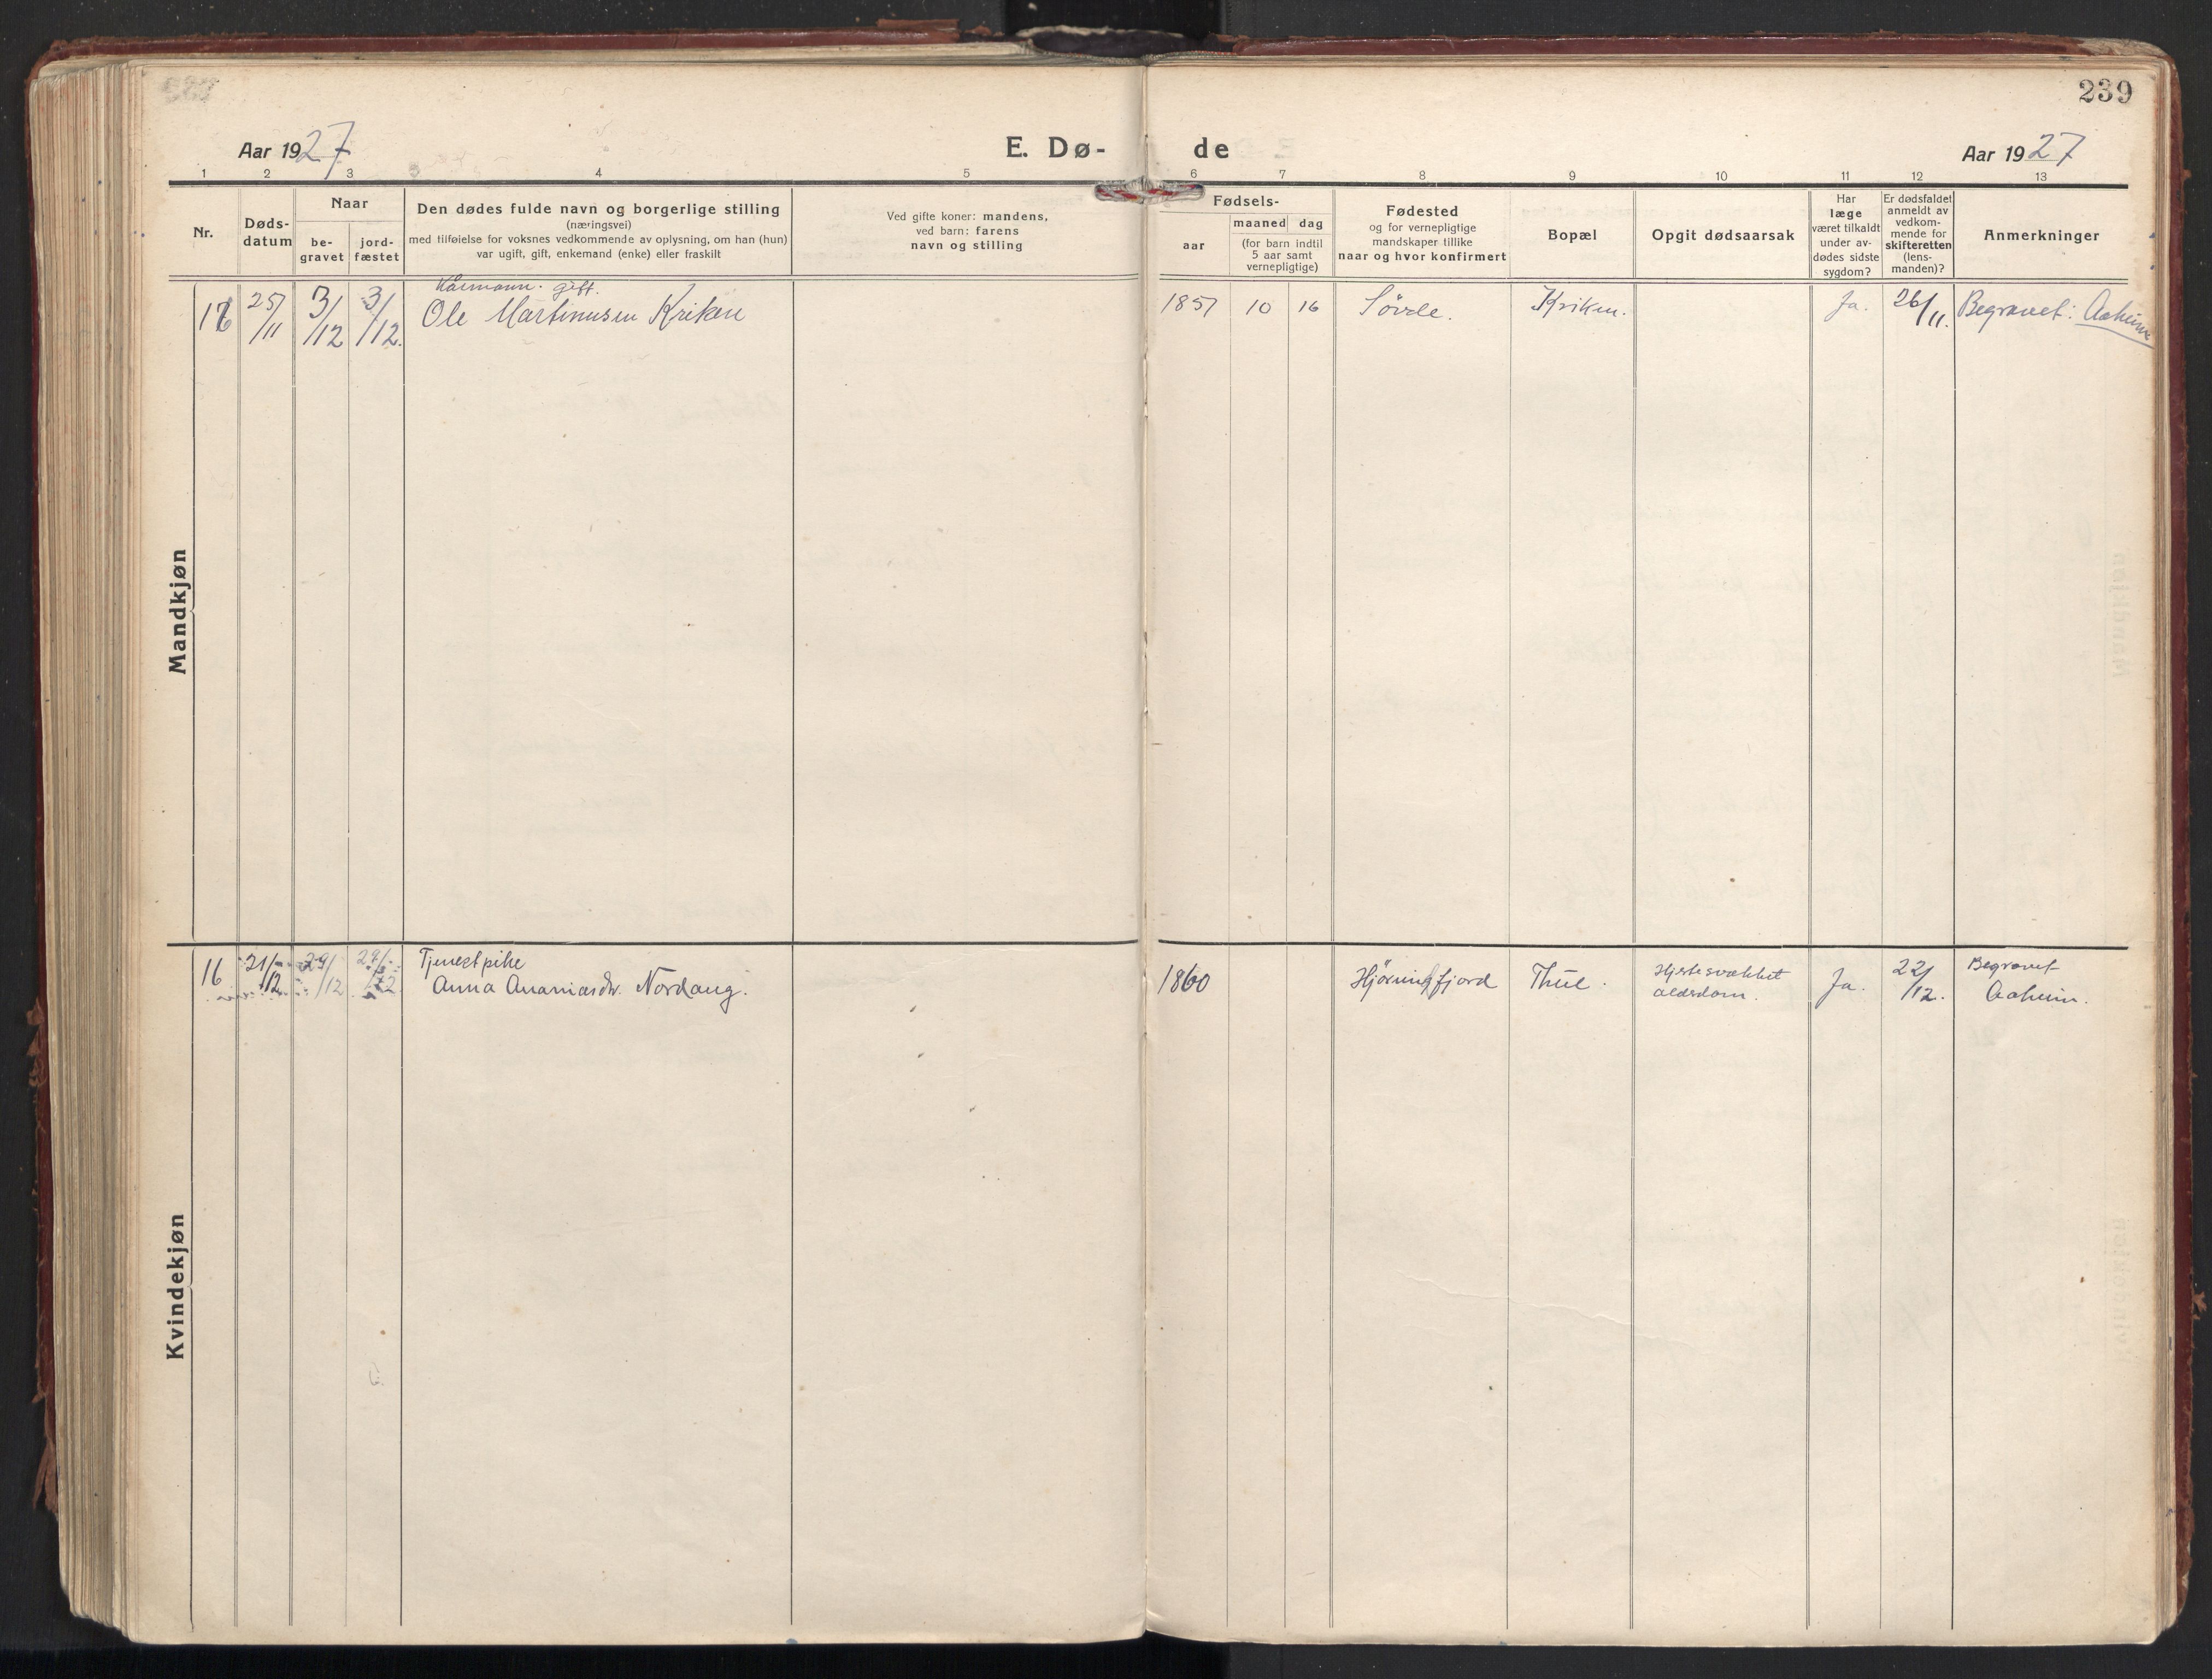 239
Aar 1927
E. Dø-
de
Aar 1927
1 2 3 4 5 6 7 8 9 10 11 12 13
Nr.
Døds-
datum
Naar
be-
gravet
jord-
fæstet
Den dødes fulde navn og borgerlige stilling
(næringsvei)
med tilføielse for voksnes vedkommende av oplysning, om han (hun)
var ugift, gift, enkemand (enke) eller fraskilt
Ved gifte koner: mandens,
ved barn: farens
navn og stilling
Fødsels-
aar
maaned dag
(for barn indtil
5 aar samt
vernepligtige)
Fødested
og for vernepligtige
mandskaper tillike
naar og hvor konfirmert
Bopæl
Opgit dødsaarsak
Har
læge
været tilkaldt
under av-
dødes sidste
sygdom?
Er dødsfaldet
anmeldt av
vedkom-
mende for
skifteretten
(lens-
manden)?
Anmerkninger
Mandkjøn
25/11 3/12 3/12.
Kårmann. gift.
Ole Martinusen Kriken
1851 10 16 Søvde. Kriken. Ja. 26/11. Begravet: Aaheim
Kvindekjøn
16 21/12 29/12 29/12
Tjenestpike
Anna Ananiasdtr. Nordang.
1860 Hjørundfjord Thue. Hjertesvækket
alderdom. Ja. 22/12. Begravet
Aaheim.